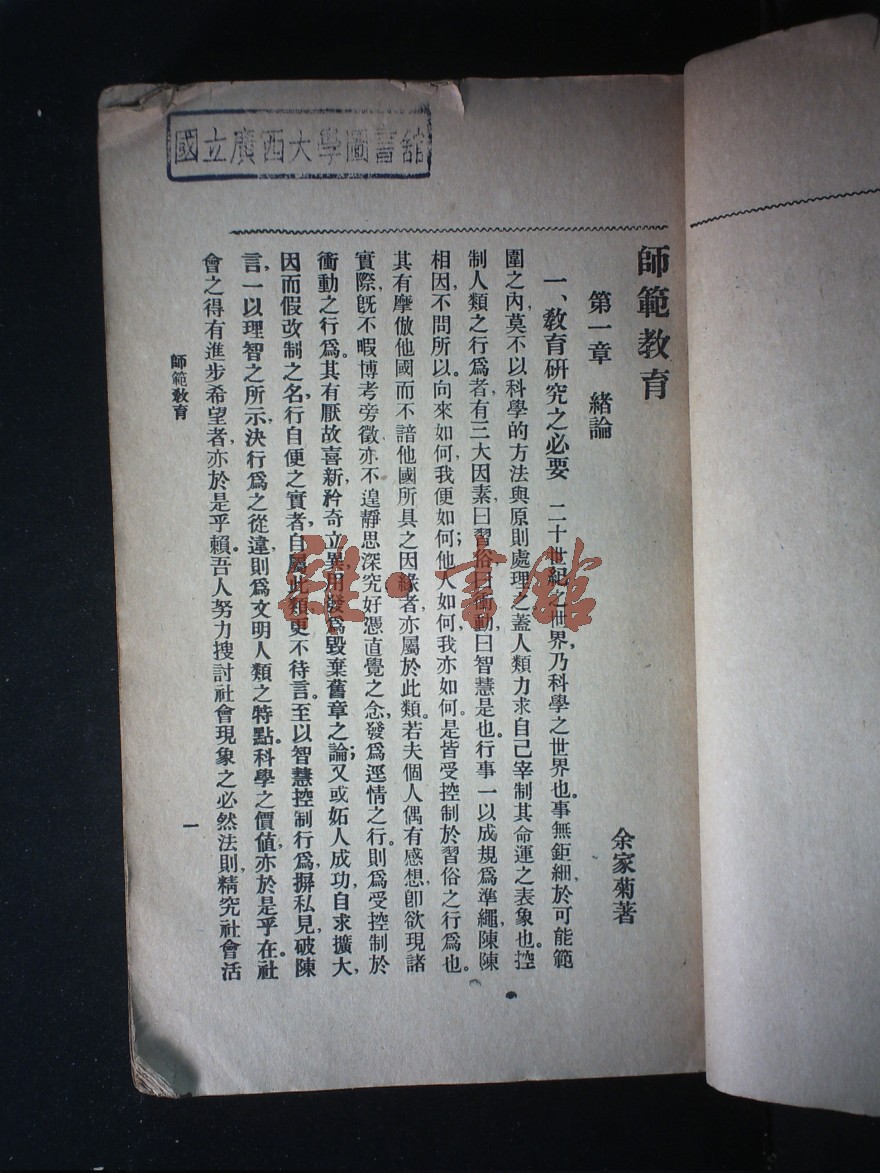 國立廣西大學圖書舘
師範敎育
余家菊著
第一章 緖論
一、敎育硏究之必要 二十世紀之世界,乃科學之世界也。事無鉅細,於可能範
圍之內,莫不以科學的方法與原則處理之,蓋人類力求自己宰制其命運之表象也。控
制人類之行爲者有三大因素,曰習俗,曰衝動,曰智慧是也。行事一以成規爲準繩,陳陳
相因,不問所以。向來如何,我便如何;他人如何,我亦如何。是皆受控制於習俗之行爲也。
其有摩倣他國而不諳他國所具之因緣者,亦屬於此類。若夫個人偶有感想,卽欲現諸
實際,旣不暇博考旁徵,亦不遑靜思深究,好憑直覺之念,發爲逕情之行,則爲受控制於
衝動之行爲。其有厭故喜新,矜奇立異,用發爲毀棄舊章之論;又或妬人成功,自求擴大,
因而假改制之名,行自便之實者,自屬此類,更不待言。至以智慧控制行爲,摒私見,破陳
言,一以理智之所示,決行爲之從違,則爲文明人類之特點。科學之價値,亦於是乎在。社
會之得有進步希望者,亦於是乎賴。吾人努力搜討社會現象之必然法則,精究社會活
師範敎育
一
雜·書館